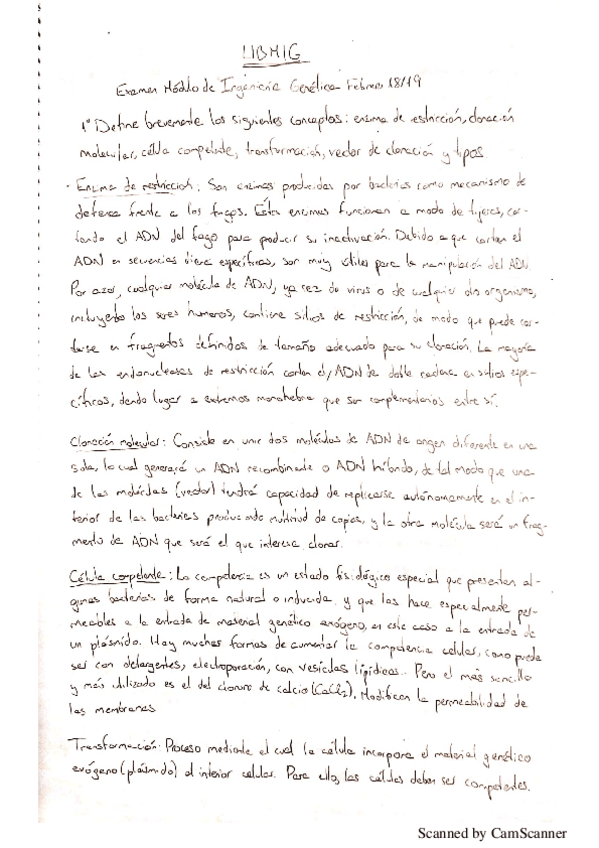 LIBMIG
Examen Módulo de Ingeniería Genética Febrero 18/19
1º Define brevemente los siguientes conceptos: enzima de restricción, clonación
molecular, célula competente, transformación, vector de clonación y tipos
· Enzima de restricción: Son enzimas producidas por bacterias como mecanismo de
defensa frente a los fagos. Estas enzimas funcionan a modo de tijeras, cor-
tando el ADN del fago para producir su inactivación. Debido a que cortan el
ADN en secuencias diana específicas, son muy útiles para la manipulación del ADN
Por azar, cualquier molécula de ADN, ya sea de virus o de cualquier otro organismo,
incluyendo los seres humanos, contiene sitios de restricción, de modo que puede cor-
tarse en fragmentos definidos de tamaño adecuado para su clonación. La mayoría
de las endonucleasas de restricción cortan el ADN de doble cadena en sitios espe-
cíficos, dando lugar a extremos monohebra que son complementarios entre sí.
Clonación molecular: Consiste en unir dos moléculas de ADN de origen diferente en una
sola, lo cual generará un ADN recombinante o ADN híbrido, de tal modo que una
de las moléculas (vector) tendrá capacidad de replicarse autónomamente en el in-
terior de las bacterias produciendo multitud de copias, y la otra molécula será un frag-
mento de ADN que será el que interesa clonar.
Célula competente: La competencia es un estado fisiológico especial que presentan al-
gunas bacterias de forma natural o inducida, y que las hace especialmente per-
meables a la entrada de material genético exógeno, en este caso a la entrada de
un plásmido. Hay muchas formas de aumentar la competencia celular, como puede
ser con detergentes, electroporación, con vesículas lipídicas... Pero el más sencillo
y más utilizado es el del cloruro de calcio (CaCl₂). Modifican la permeabilidad de
las membranas
Transformación: Proceso mediante el cual la célula incorpora el material genético
exógeno (plásmido) al interior celular. Para ello, las células deben ser competentes.
Scanned by CamScanner